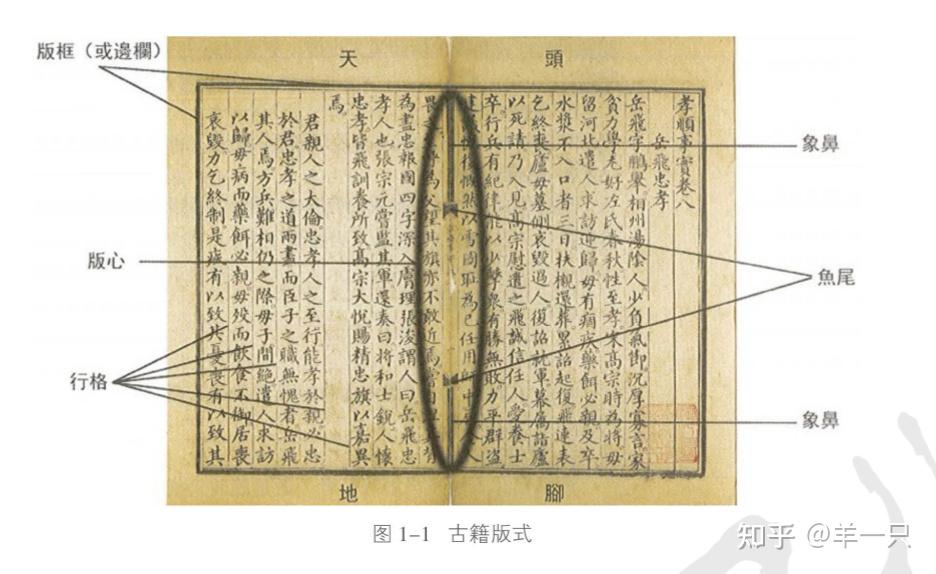 版框（或邊欄）
天
頭
象鼻
版心
魚尾
行格
象鼻
地
腳
孝順事實卷八
岳飛忠孝
岳飛字鵬舉相州湯陰人少負氣節沉厚寡言家
貧力學尤好左氏春秋性至孝宋高宗時為將母
留河北遣人求訪迎歸母有痼疾藥餌必親及卒
水漿不入口者三日扶櫬還葬累詔起復飛連表
乞終喪廬母墓側哀毀過人復詔就軍幕屬詣廬
以死請乃入見高宗慰遣之飛誠信任人愛養士
卒行兵有紀律能以少擊衆有勝無敗力平群盜
慨然以雪國恥為己任用
為父望其旗亦不敢近焉
為盡忠報國四字深入膚理張浚謂人曰岳飛忠
孝人也張宗元嘗監其軍還奏曰將和士銳人懷
忠孝皆飛訓養所致高宗大悅賜精忠旗以嘉異
焉
君親人之大倫忠孝人之至行能孝於親必忠
於君忠孝之道兩盡而臣子之職無愧者岳飛
其人焉方兵難相仍之際母子間絶遣人求訪
以歸母病而藥餌必親母歿而飲食不御居喪
哀毀力乞終制是疾有以致其憂喪有以致其
图 1-1 古籍版式
知乎 @羊一只